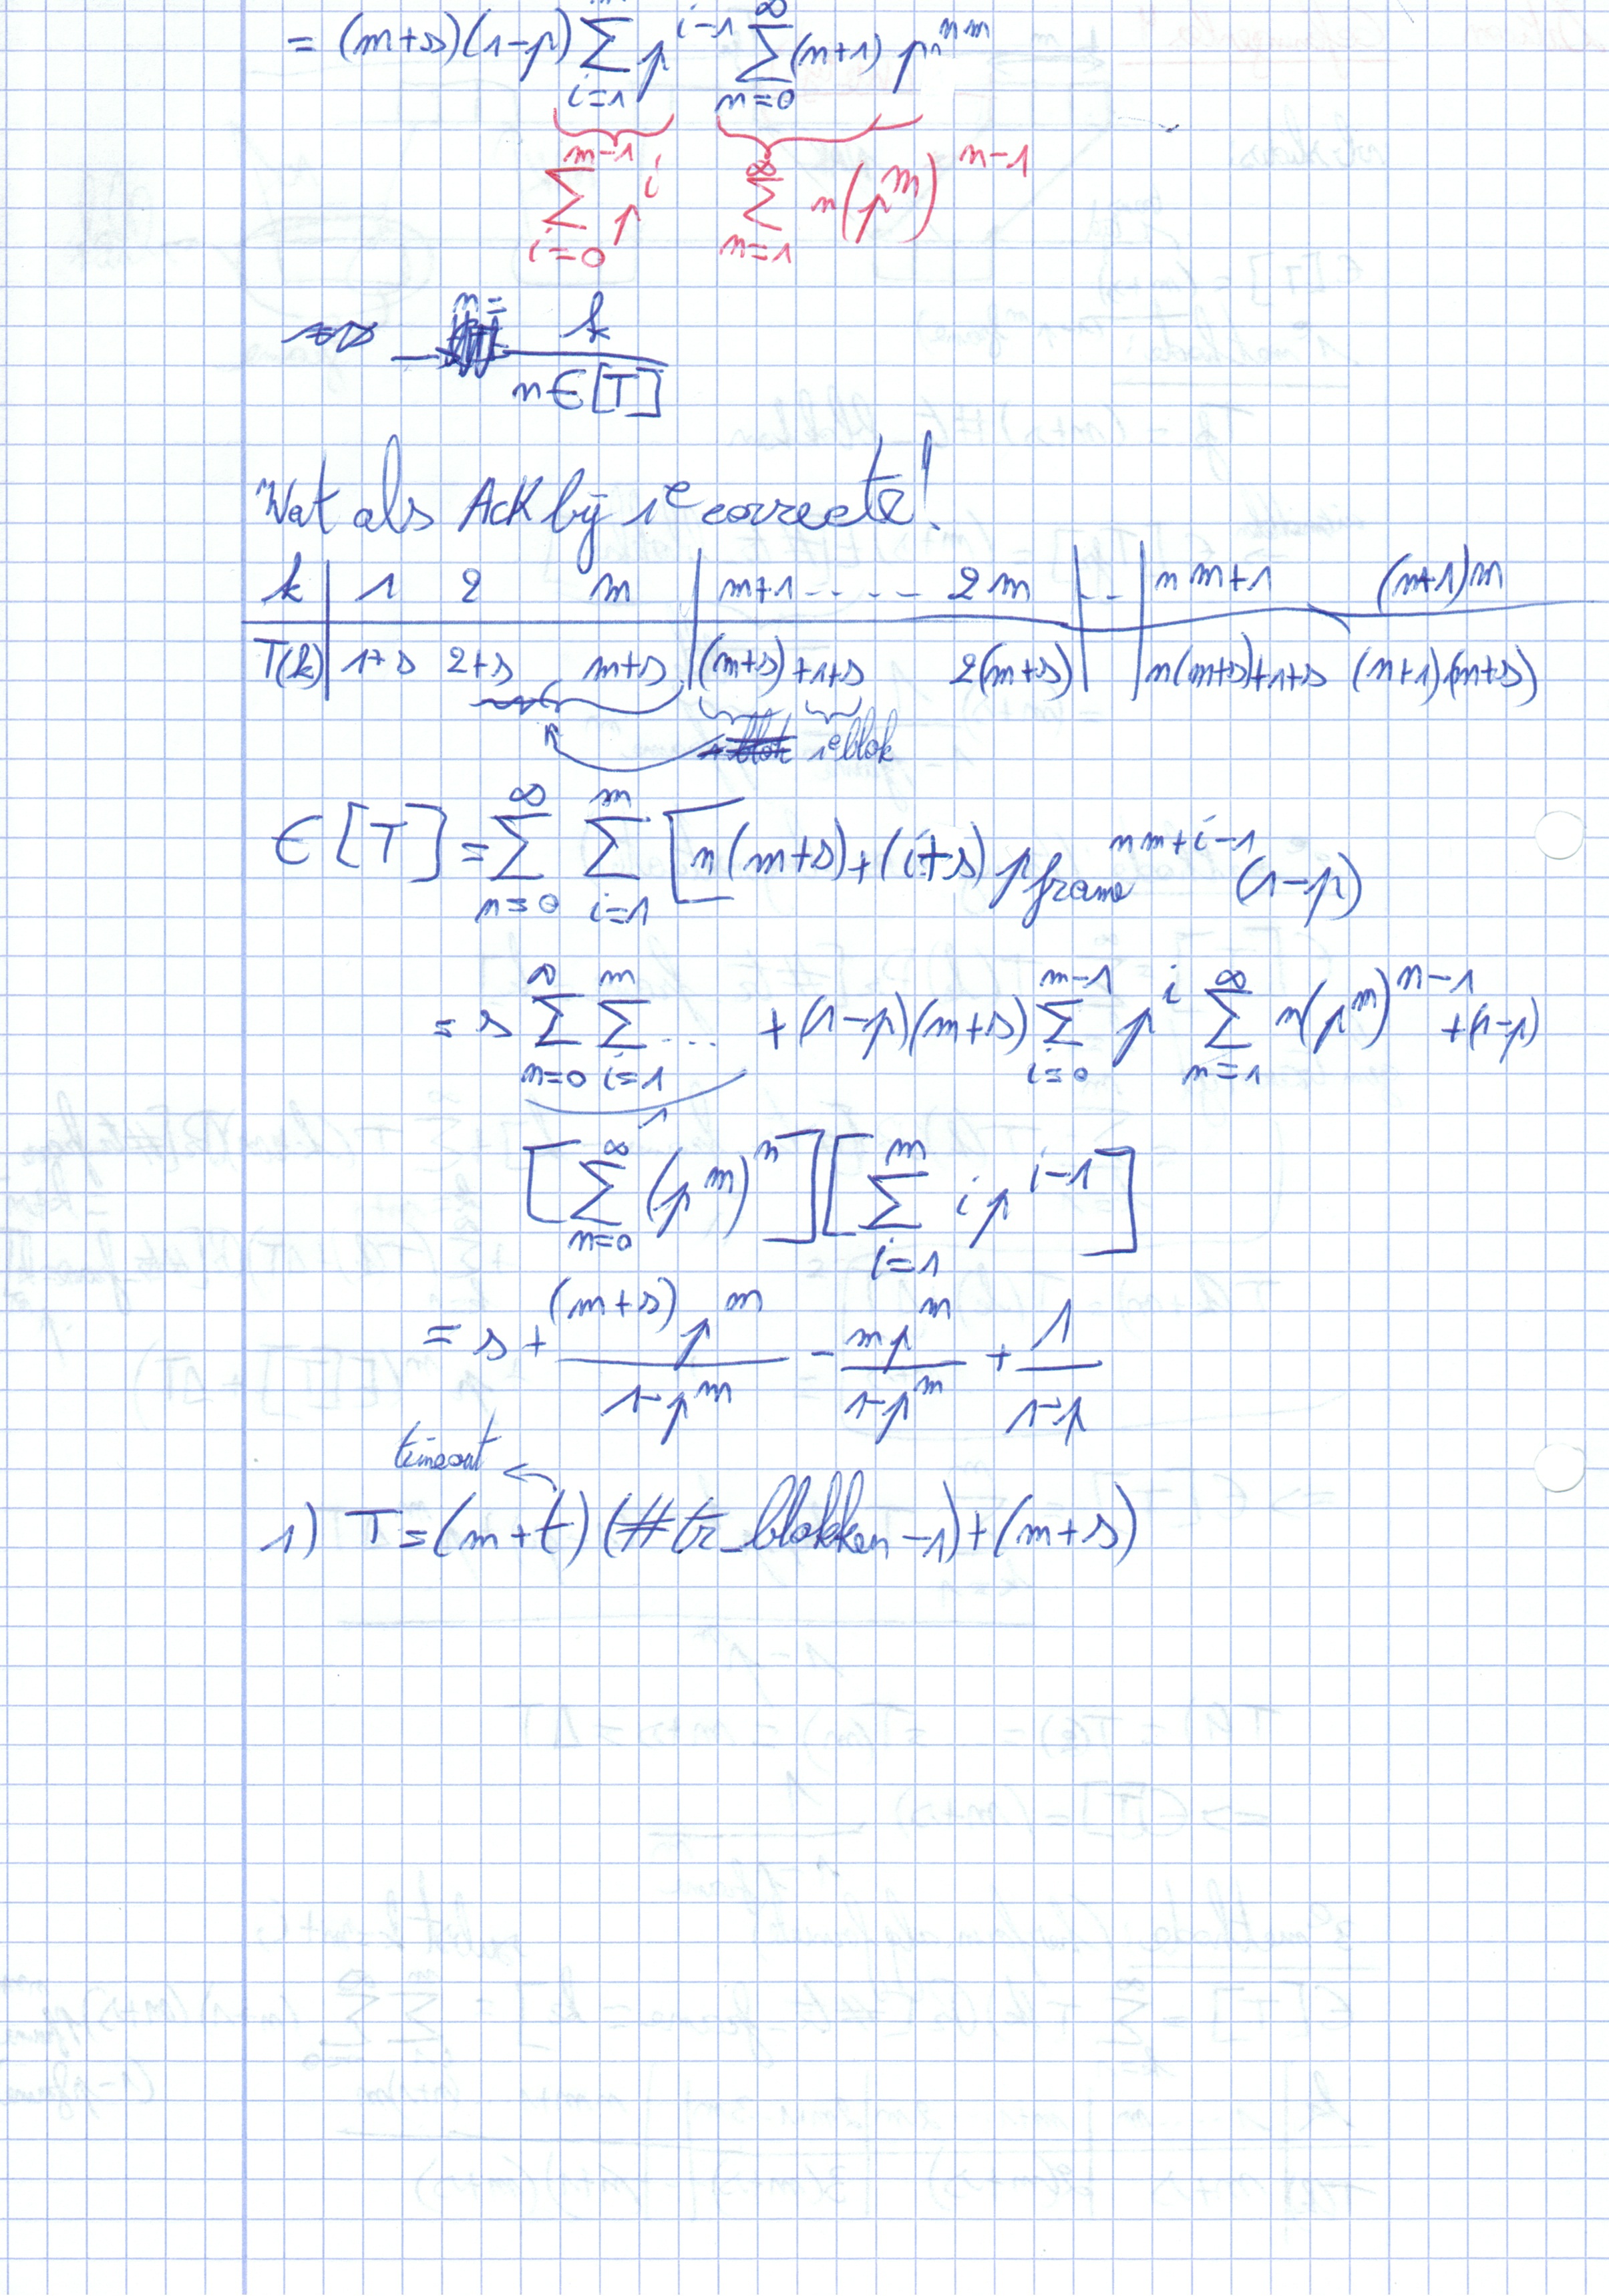 = (m+s)(1-p) ∑_{i=1} p^{i-1} ∑_{n=0}^{∞} (n+1) p^{nm}
∑_{i=0}^{m-1} p^i ∑_{n=1}^{∞} n(p^m)^{n-1}
η = k / (n E[T])
Wat als Ack bij 1e correcte!
k | 1 2 m | m+1 ---- 2m | -- | nm+1 (n+1)m
T(k) | 1+s 2+s m+s | (m+s)+1+s 2(m+s) | | n(m+s)+1+s (n+1)(m+s)
1e blok
E[T] = ∑_{n=0}^{∞} ∑_{i=1}^{m} [n(m+s)+(i+s) p_frame^{nm+i-1} (1-p)
= s ∑_{n=0}^{∞} ∑_{i=1}^{m} ... + (1-p)(m+s) ∑_{i=0}^{m-1} p^i ∑_{n=1}^{∞} n(p^m)^{n-1} + (1-p)
1
[∑_{n=0}^{∞} (p^m)^n] [∑_{i=1}^{m} i p^{i-1}]
= s + (m+s) p^m / (1-p^m) - m p^m / (1-p^m) + 1 / (1-p)
timeout ←
1) T = (m+t) (#tr_blokken -1) + (m+s)